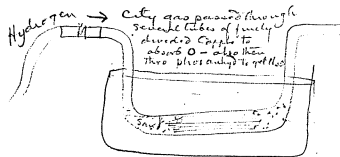 Hydrogen → City gas passed through
several tubes of finely
divided Copper to
absorb O - also then
thro phos anhyd to get